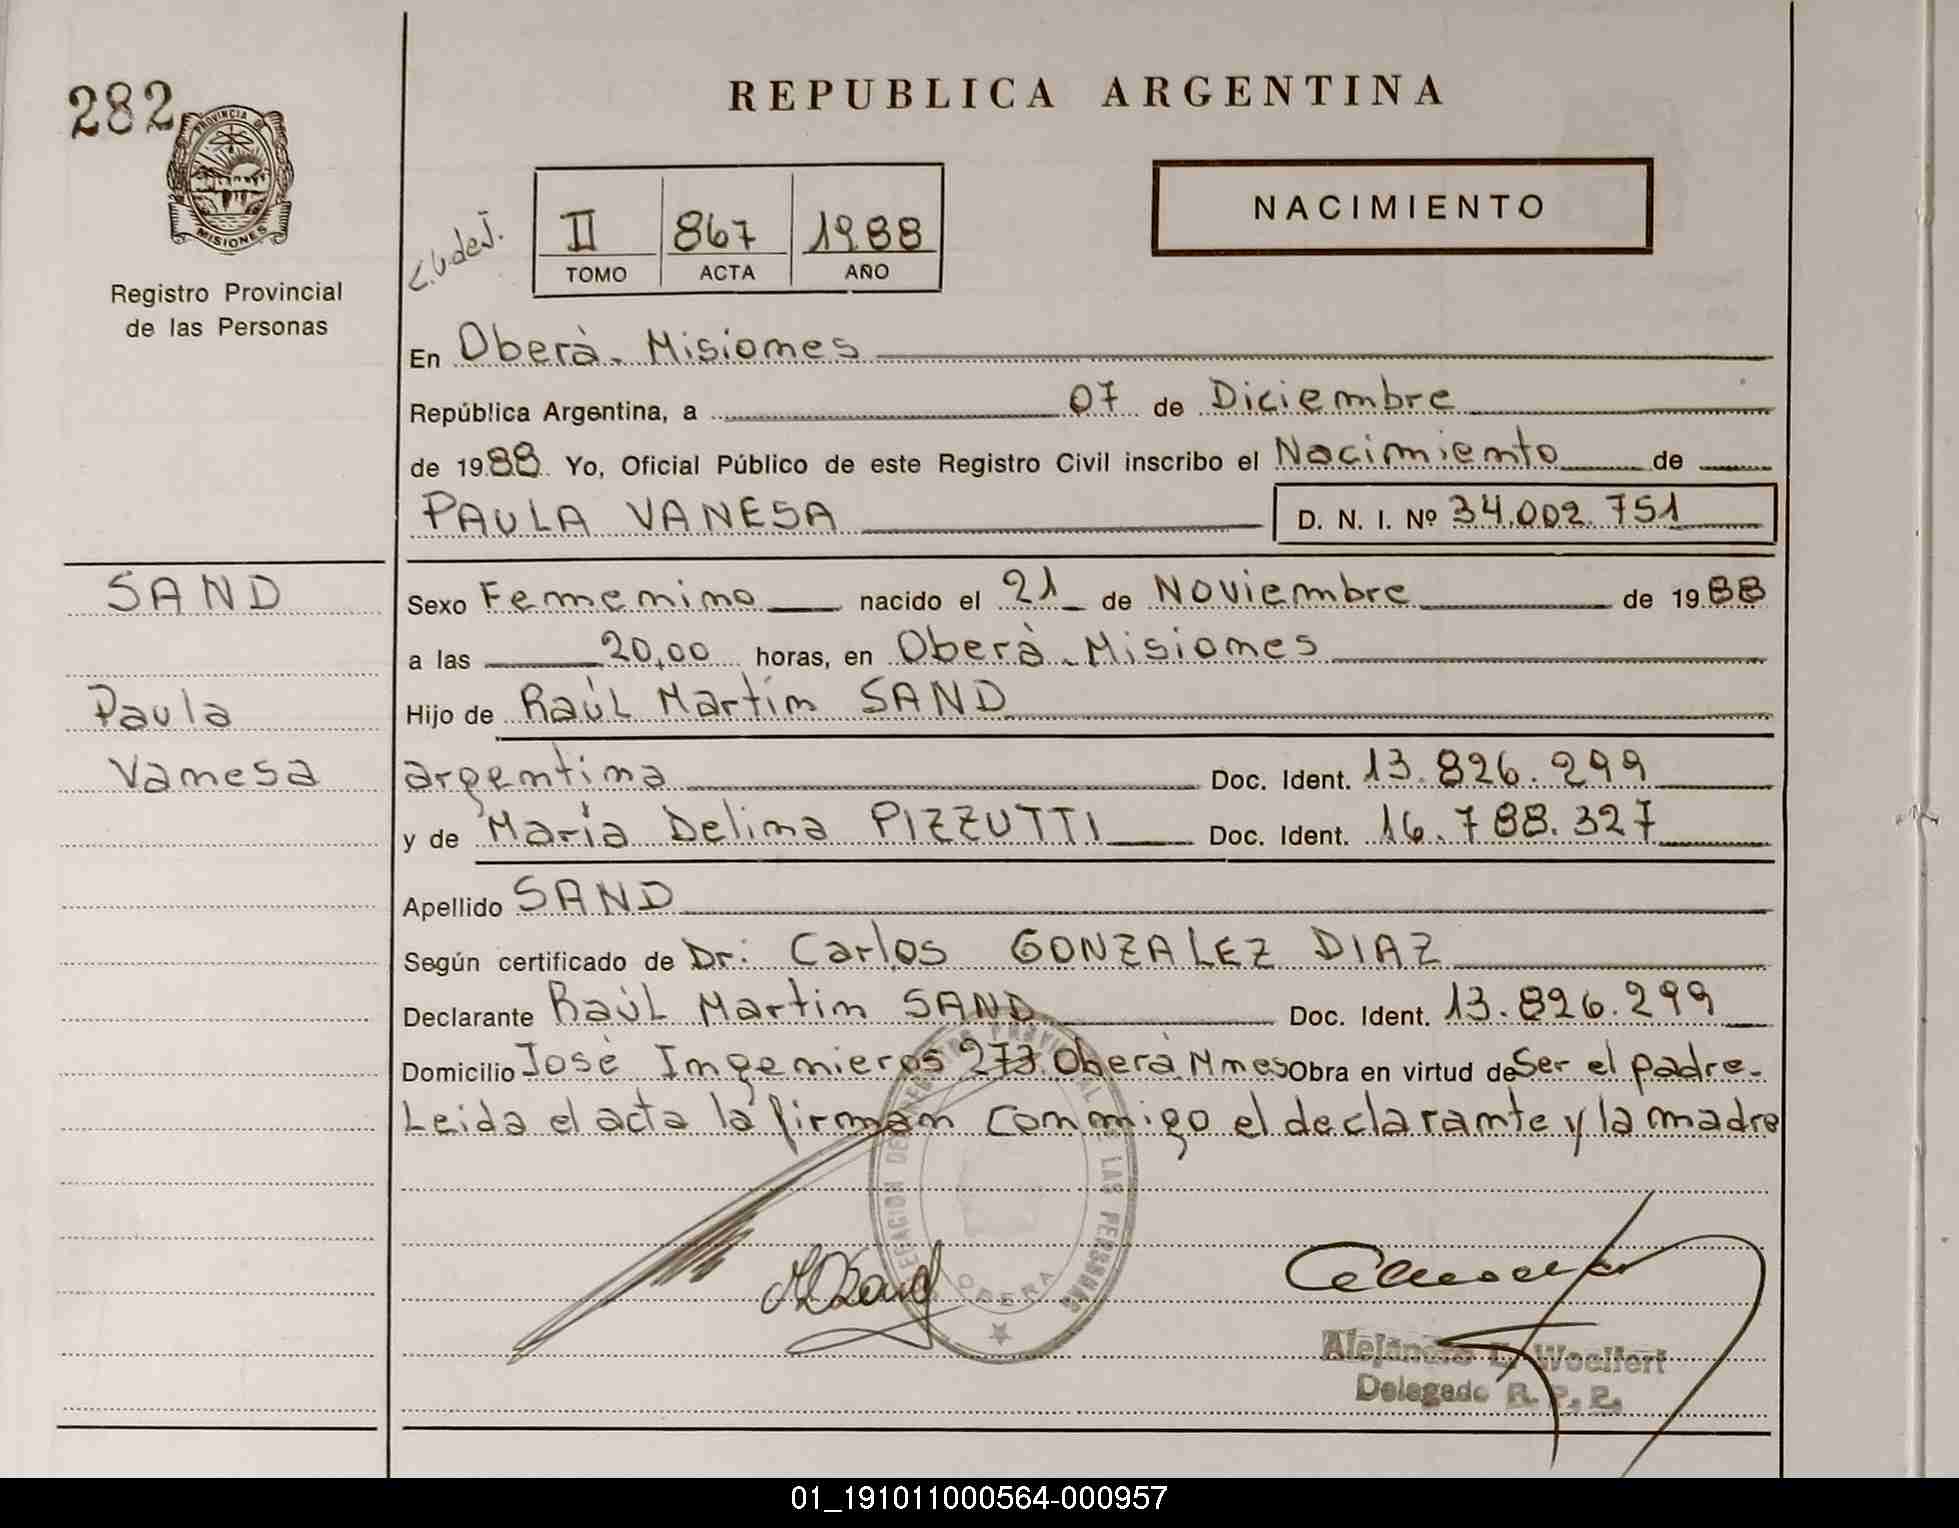 282
REPUBLICA ARGENTINA
PROVINCIA DE
MISIONES
Registro Provincial
de las Personas
II 867 1988
TOMO ACTA AÑO
NACIMIENTO
En Oberà. Misiones
República Argentina, a 07 de Diciembre
de 1988 Yo, Oficial Público de este Registro Civil inscribo el Nacimiento de
PAULA VANESA D. N. I. Nº 34.002.751
SAND
Paula
Vanesa
Sexo Femenino nacido el 21 de Noviembre de 1988
a las 20,00 horas, en Oberà. Misiones
Hijo de Raúl Martín SAND
argentina Doc. Ident. 13.826.299
y de María Delina PIZZUTTI Doc. Ident. 16.788.327
Apellido SAND
Según certificado de Dr: Carlos GONZALEZ DIAZ
Declarante Raúl Martin SAND Doc. Ident. 13.826.299
Domicilio Josè Ingenieros 273 Oberà Mnes Obra en virtud de Ser el padre.
Leida el acta la firman conmigo el declarante y la madre
DE LAS PERSONAS
OBERA
Alejandro L. Woelfert
Delegado R. P. P.
01_191011000564-000957